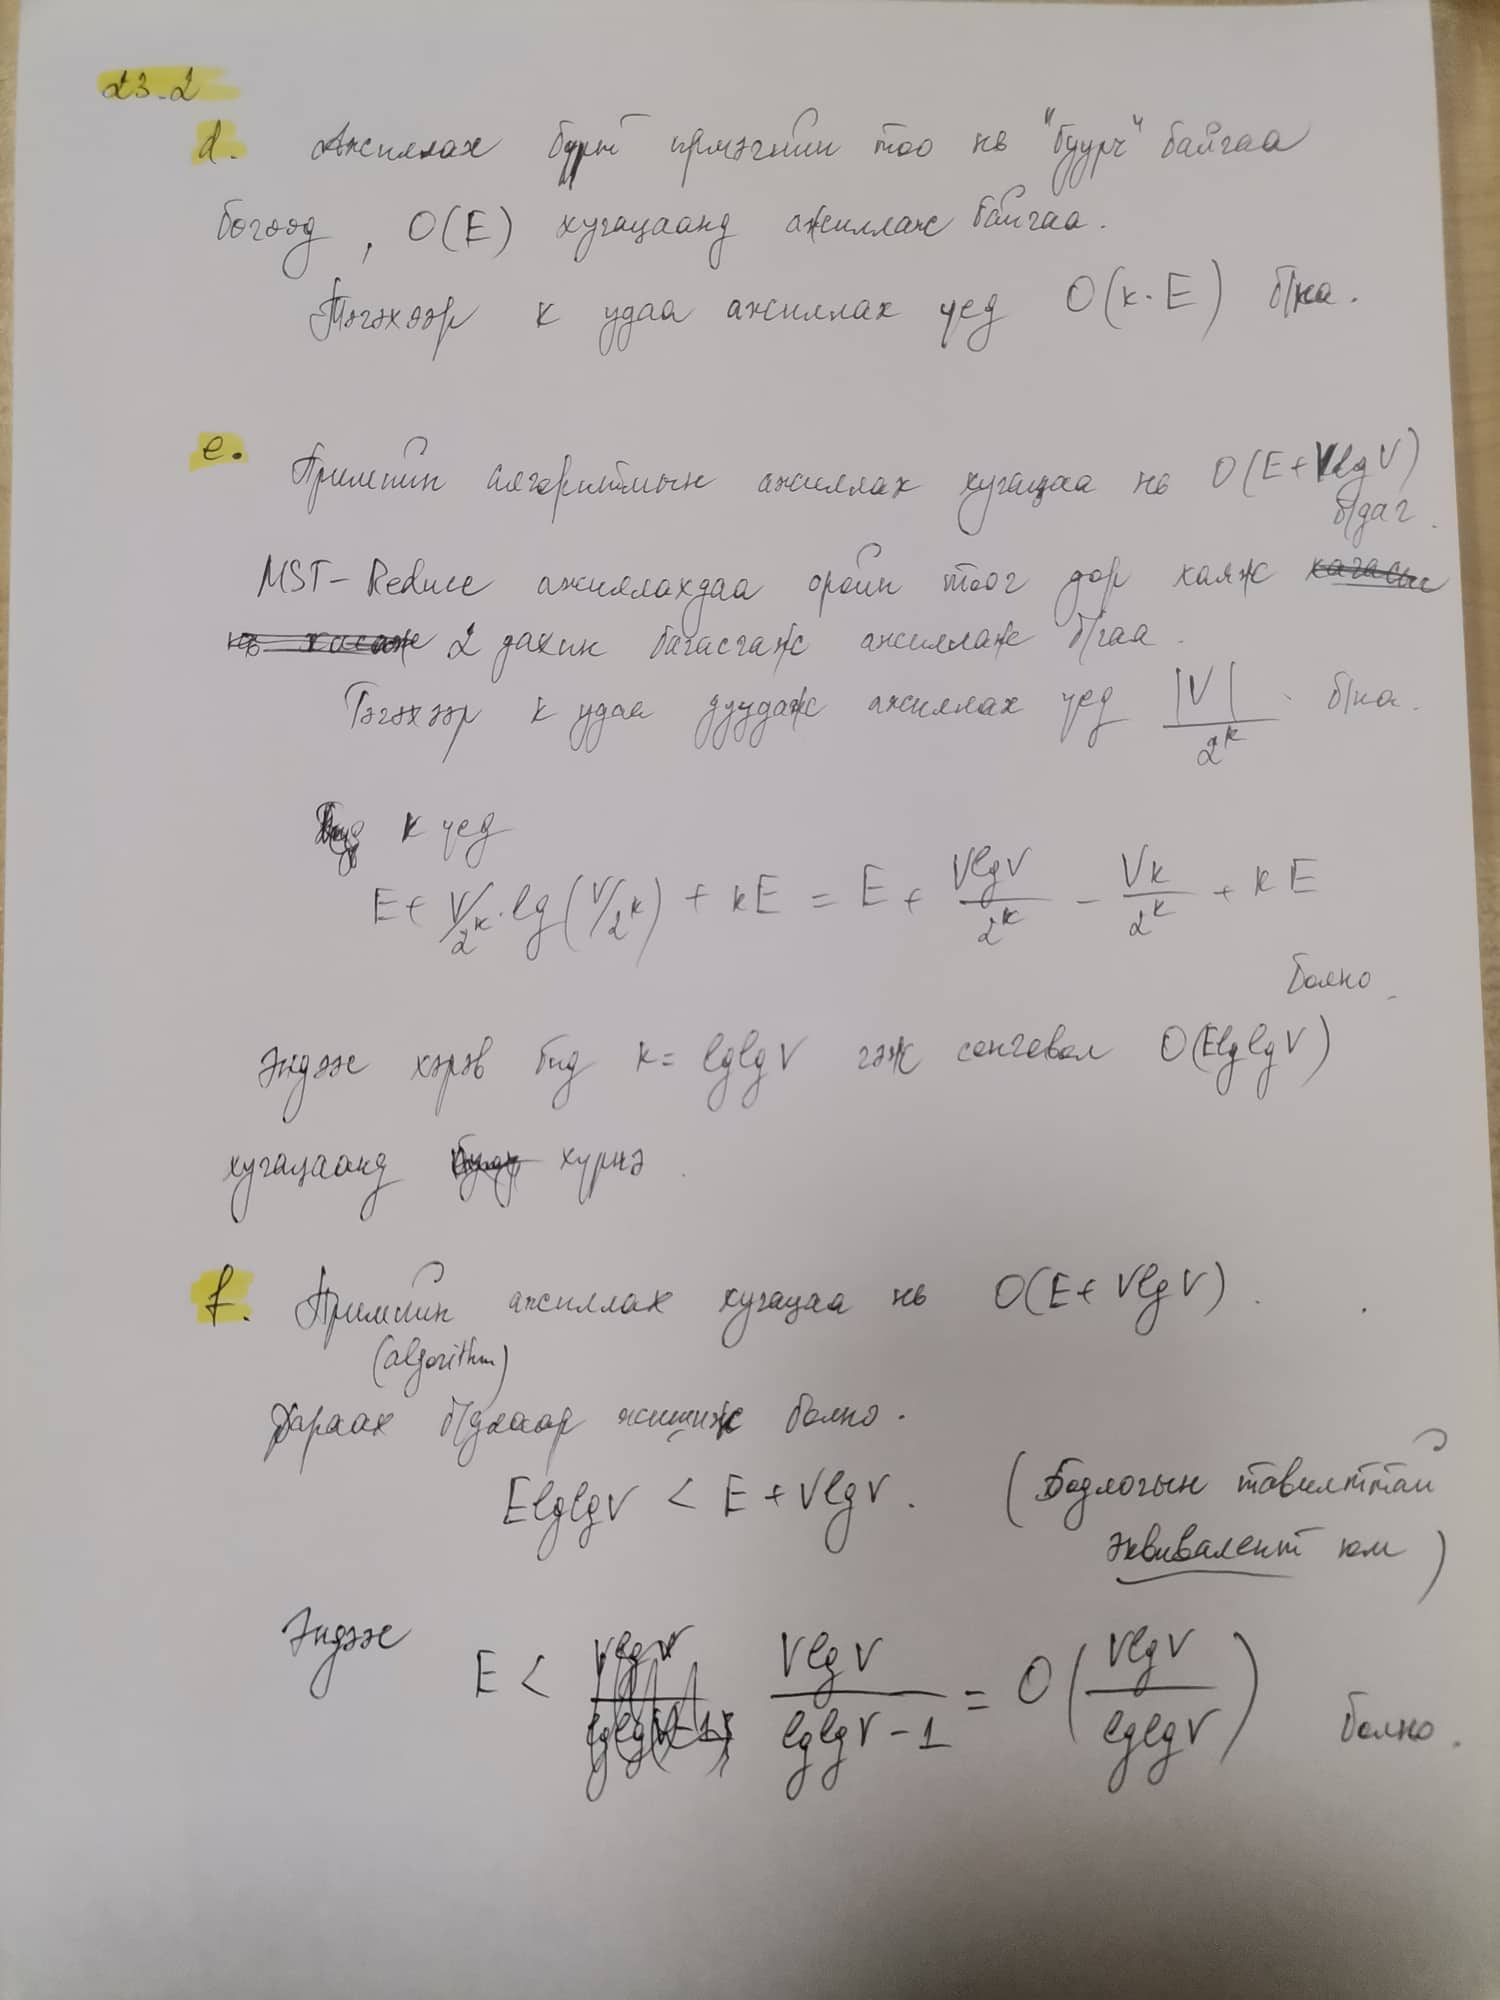 23-2
d. Ажиллах бүрт ирмэгийн тоо нь "буурч" байгаа
бөгөөд, O(E) хугацаанд ажиллаж байгаа.
Тэгэхээр k удаа ажиллах үед O(k·E) б/на.
e. Примийн алгоритмын ажиллах хугацаа нь O(E+VlgV)
б/даг.
MST-Reduce ажиллахдаа оройн тоог дор хаяж
2 дахин багасгаж ажиллаж б/гаа.
Тэгэхээр k удаа дуудаж ажиллах үед |V|/2^k б/на.
k үед
E + V/2^k · lg(V/2^k) + kE = E + VlgV/2^k - Vk/2^k + kE
болно.
Эндээс хэрэв бид k = lglgV гэж сонговол O(ElglgV)
хугацаанд хүрнэ.
f. Примийн ажиллах хугацаа нь O(E+VlgV).
(algorithm)
Дараах б/длаар жишиж болно.
ElglgV < E + VlgV. (Бодлогын тавилттай
эквивалент юм)
Эндээс E < VlgV/(lglgV-1) = O(VlgV/lglgV) болно.